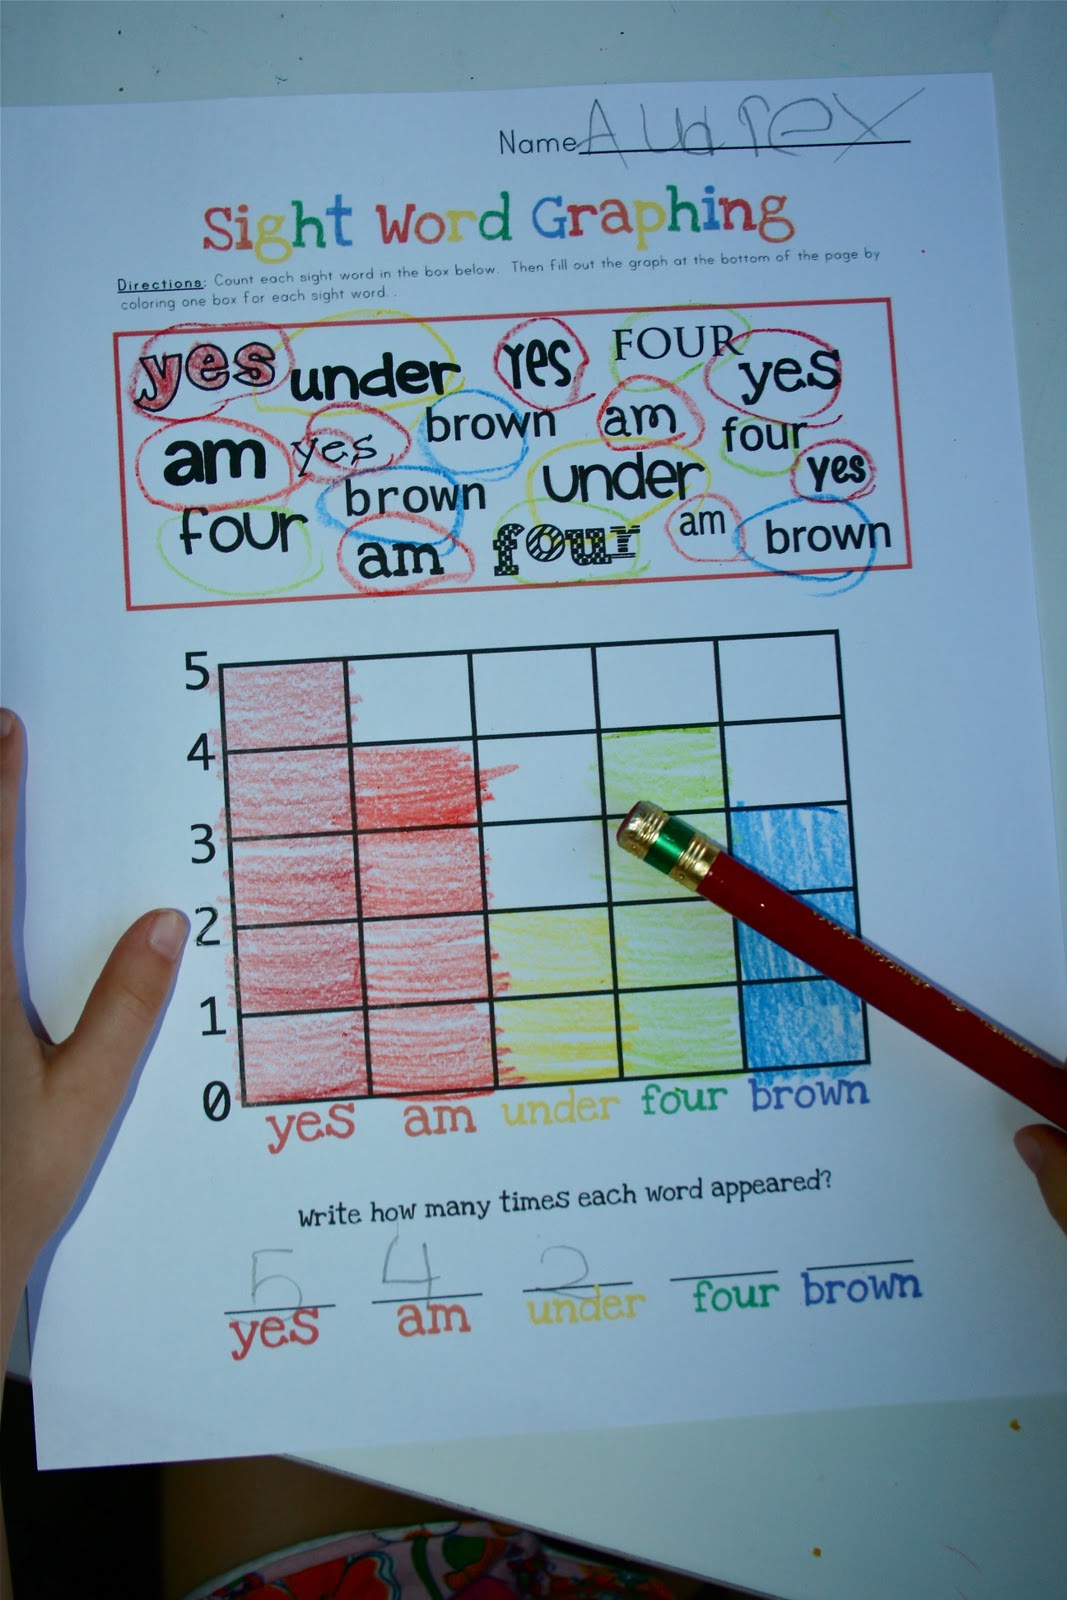 Name Audrey
Sight Word Graphing
Directions: Count each sight word in the box below. Then fill out the graph at the bottom of the page by
coloring one box for each sight word. .
yes under yes FOUR yes
am yes brown am four
brown under yes
four am four am brown
5
4
3
2
1
0
yes am under four brown
Write how many times each word appeared?
5 4 2
yes am under four brown